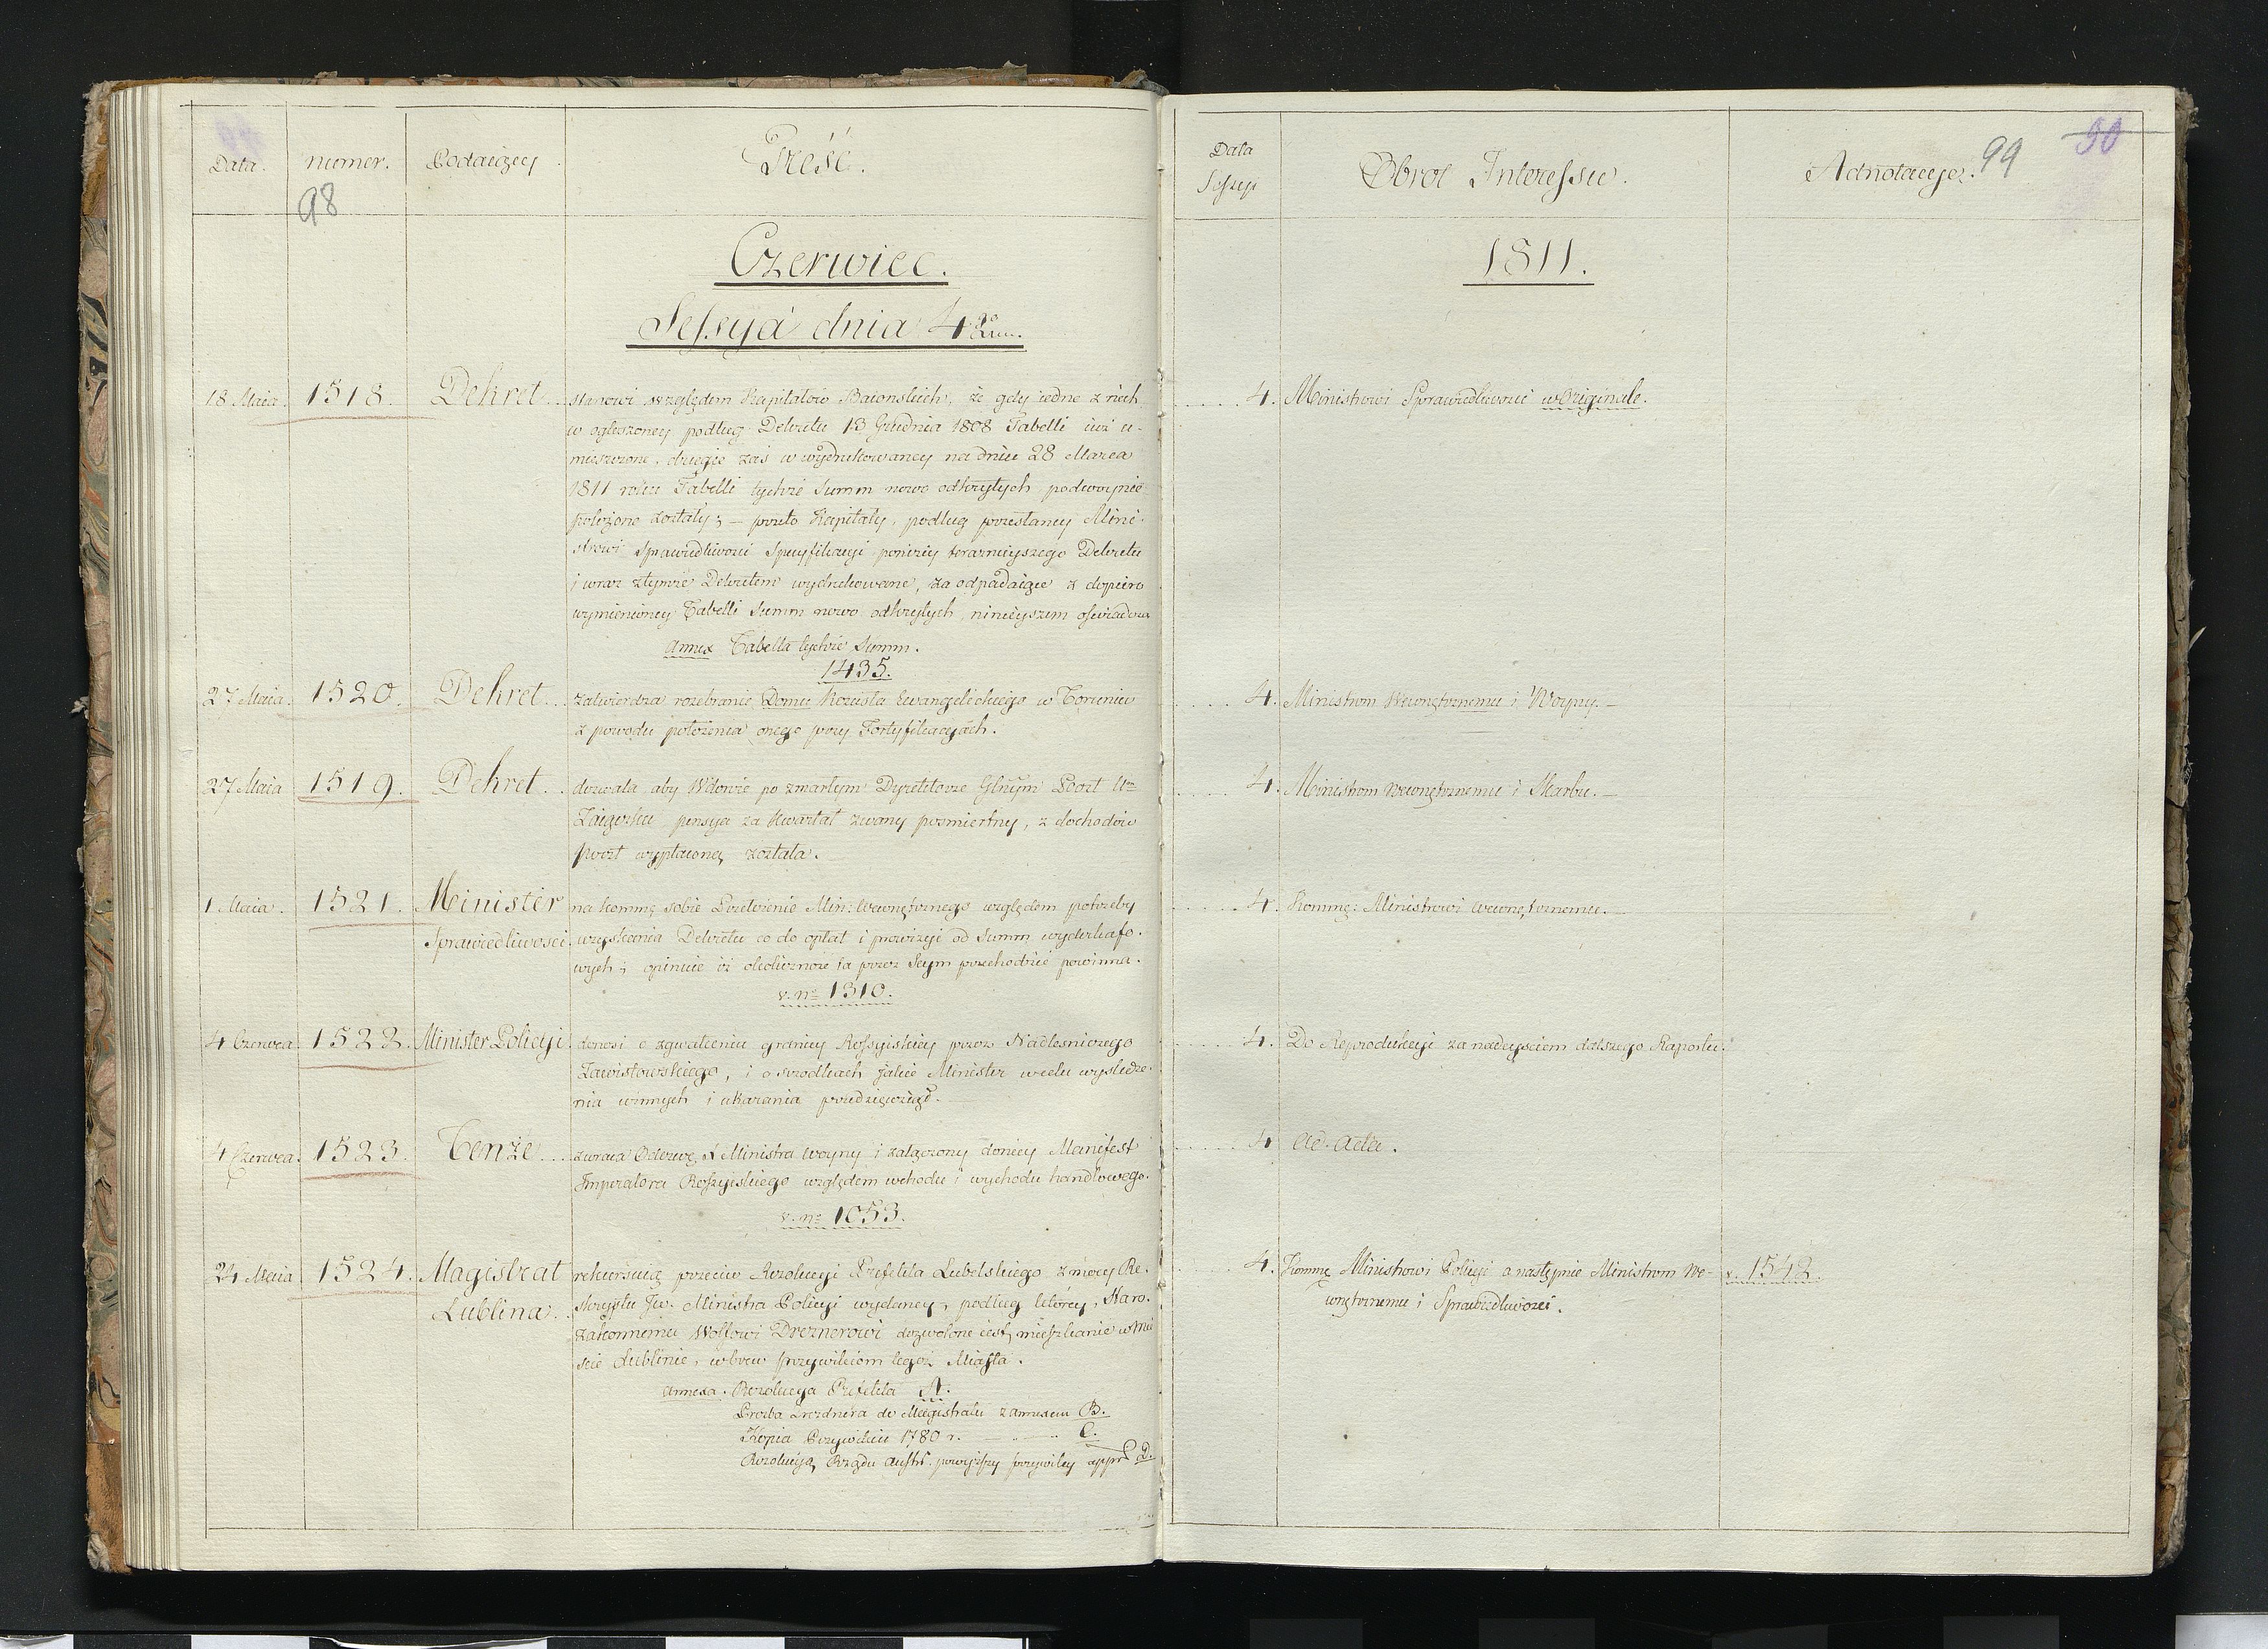 Data. numer. Podaiący Treść.
98
Czerwiec.
Sessya dnia 4go
18 Maia. 1518. Dekret stanowi względem Kapitałów Baionskich, że gdy iedne z nich
w ogłoszoney podług Dekretu 13 Grudnia 1808 Tabelli iuż u-
mieszczone, drugie zaś w wydrukowaney na dniu 28 Marca
1811 roku Tabelli tychże Summ nowo odkrytych podwoynie
położone zostały; – przeto Kapitały, podług przesłaney Mini-
strowi Sprawiedliwości Specyfikacyi poniżey teraznieyszego Dekretu
i wraz z tymże Dekretem wydrukowane, za odpadaiące z dopiero
wymienioney Tabelli Summ nowo odkrytych, ninieyszem oświadcza
annex Tabella tychże Summ.
1435.
27 Maia. 1520. Dekret zatwierdza rozebranie Domu Ewangelickiego w Toruniu
z powodu położenia onego przy Fortyfikacyach.
27 Maia 1519. Dekret dozwala aby Wdowie po zmarłym Dyrektorze Głnym Poczt
Zaigerku pensya za Kwartał zwany posmiertny, z dochodów
Poczt wypłaconą została.
1 Maia. 1521. Minister na kommę sobie Przełożenie Min: Wewnętrznego względem potrzeby
Sprawiedliwości uzyskania Dekretu co do opłat i prowizyi od Summ wyderkafo-
wych; opiniuie iż okoliczność ta przez Seym przechodzić powinna.
v. no 1310.
4 Czerwca. 1522. Minister Policyi donosi o zgwałceniu granicy Rossyiskiey przez Nadlesniczego
Zawistowskiego, i o srodkach jakie Minister w celu wysledze-
nia winnych i ukarania przedsięwziął.
4 Czerwca. 1523. Tenże zwraca Odezwę Ministra Woyny i załączony doniey Manifest
Imperatora Rossyiskiego względem wchodu i wychodu handlowego.
v. no 1053.
24 Maia 1524. Magistrat rekursuią przeciw Rezolucyi Prefekta Lubelskiego z mocy Re-
Lublina. skryptu Jw. Ministra Policyi wydaney, podług którey, Staro-
zakonnemu Wolfowi Dreznerowi dozwolone iest mieszkanie w Mie
scie Lublinie, wbrew przywileiom tegoż Miasta.
annexa. Rezolucya Prefekta A.
Prozba Drezdnera do Magistratu z annexem B.
Kopia Przywileiu 1780 r. — " — C.
Rezolucya Rządu Austr. powyższy przywiley appr D.
Data
Sessyi Obrot Interessu. Adnotacye. 99 90
1811.
4. Ministrowi Sprawiedliwości w Originale.
4. Ministrom Wewnętrznemu i Woyny. –
4. Ministrom Wewnętrznemu i Skarbu. –
4. Kommę: Ministrowi Wewnętrznemu. –
4. Do Reprodukcyi za nadeysciem dalszego Raportu.
4. ad. acta.
4. Kommę Ministrowi Policyi a następnie Ministrom We- v. 1542.
wnętrznemu i Sprawiedliwości.